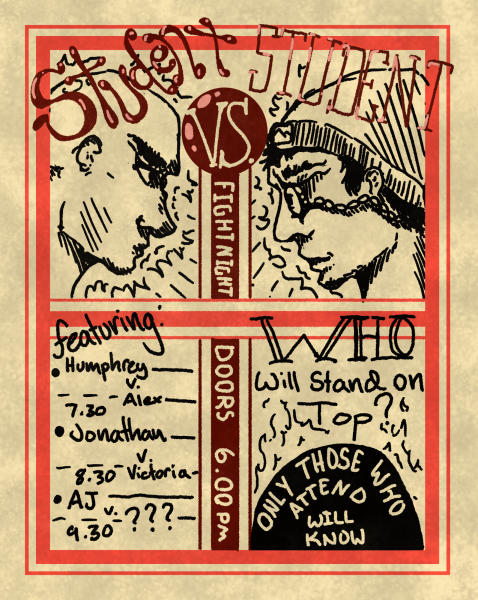 Student STUDENT
VS.
FIGHT NIGHT
featuring:
• Humphrey —
v.
Alex —
7.30
• Jonathan —
v.
8.30 Victoria -
• AJ —
v.
9.30 - ???
DOORS 6.00 PM
WHO
Will Stand on
Top?
ONLY THOSE WHO
ATTEND
WILL
KNOW